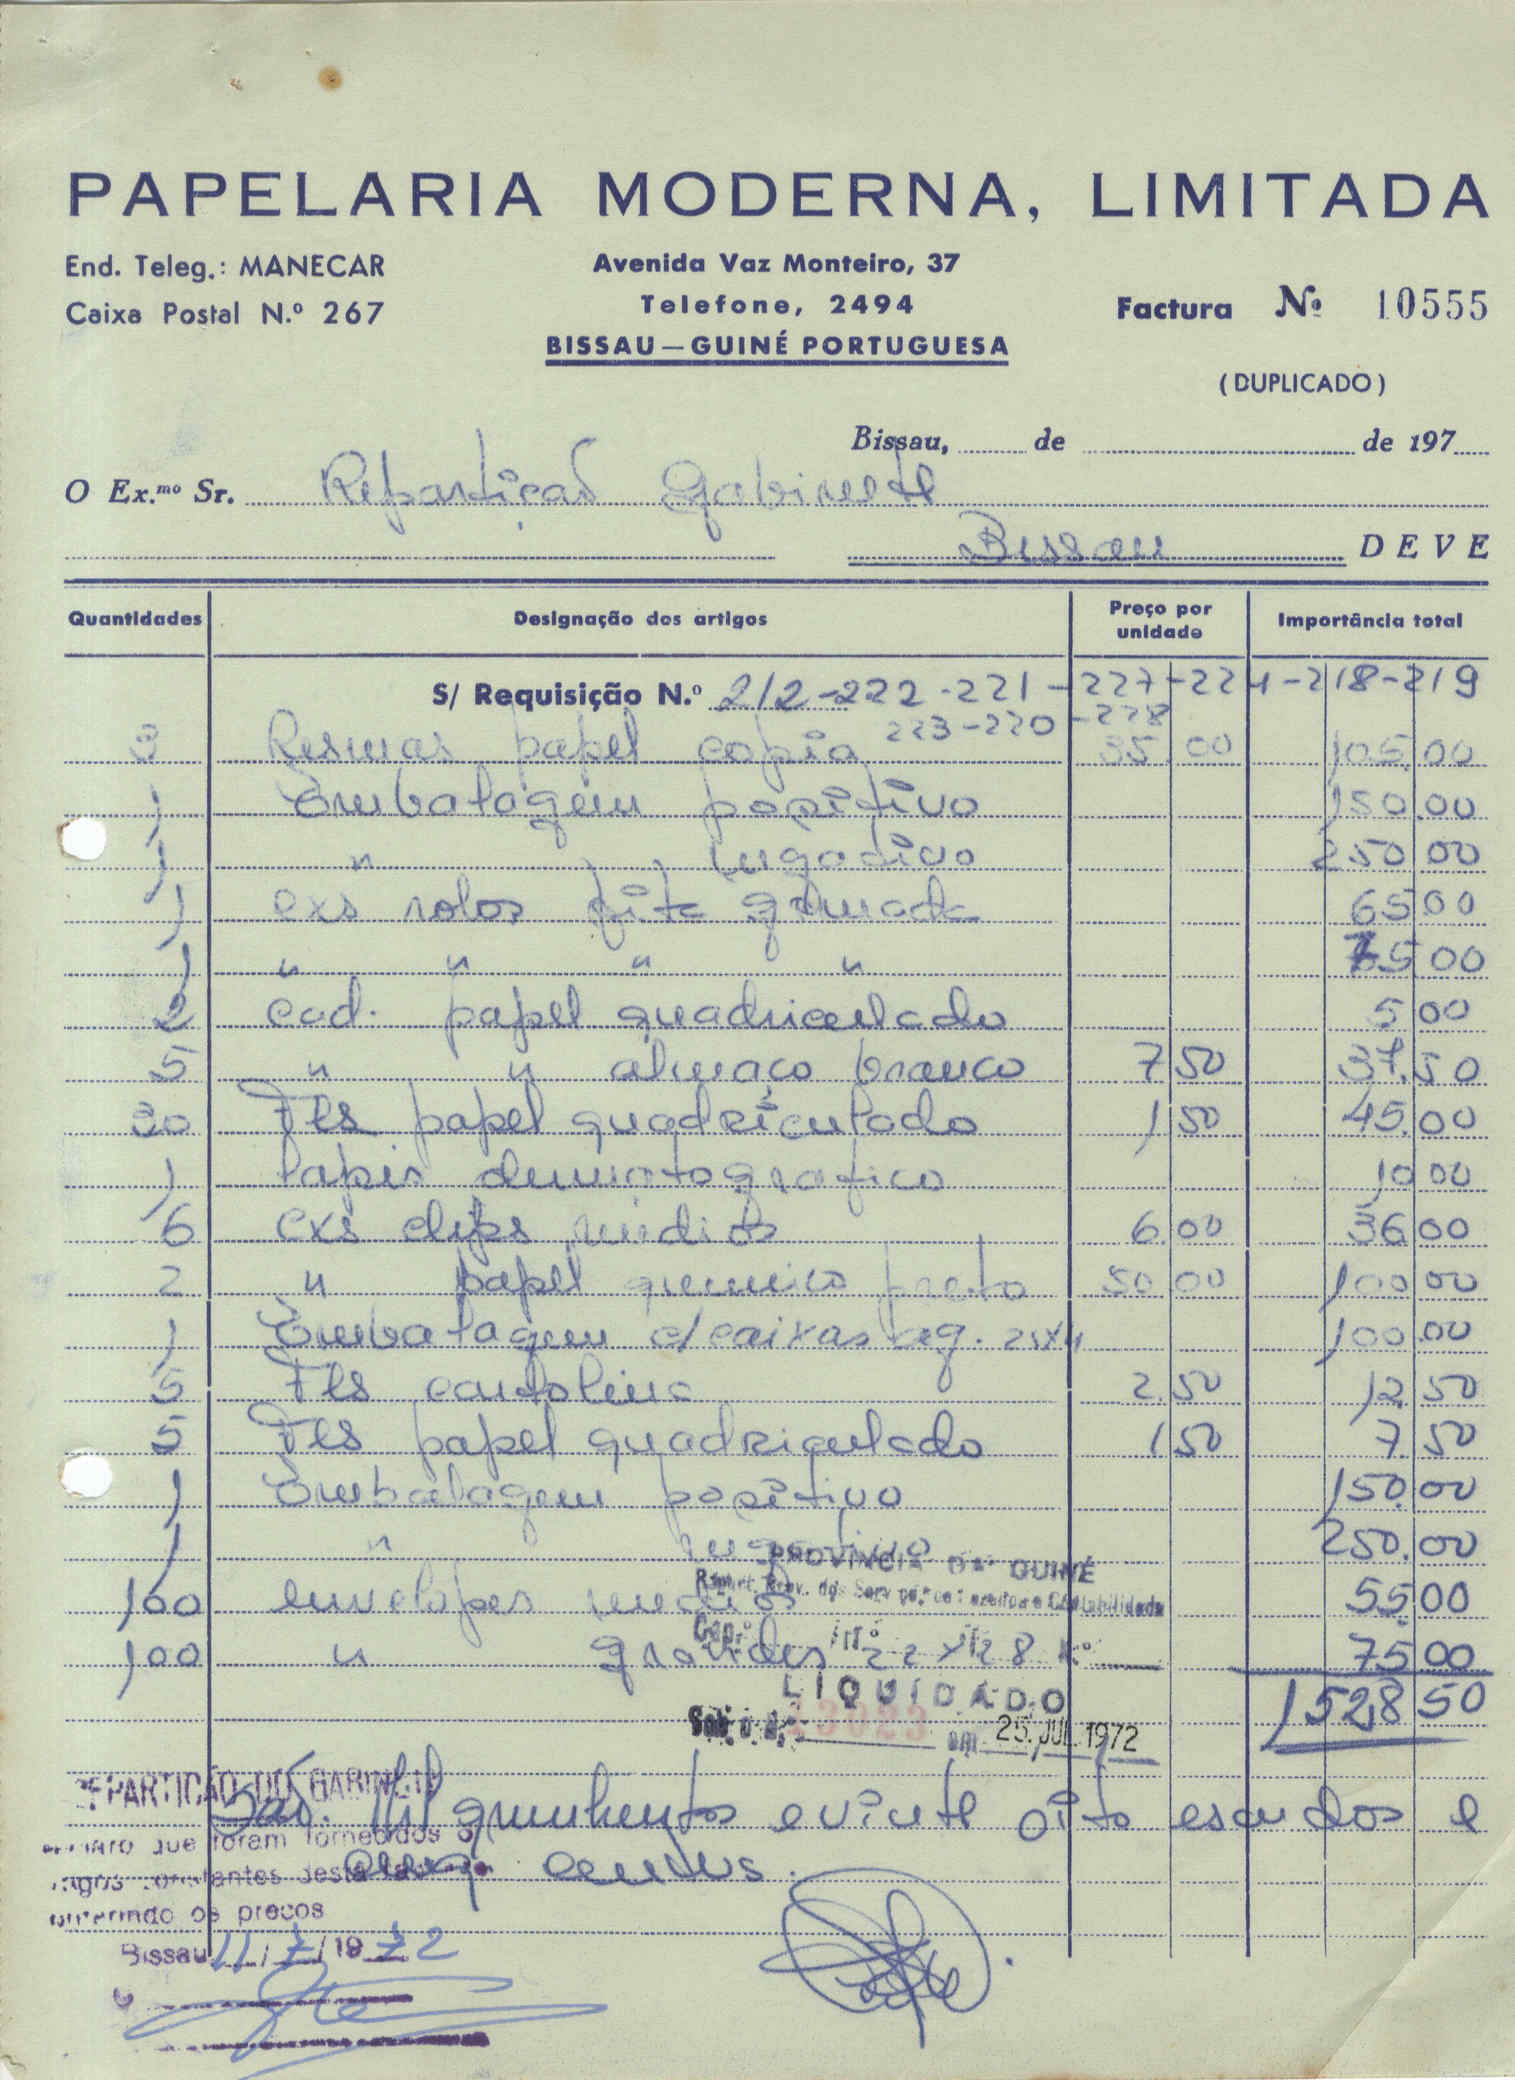 PAPELARIA MODERNA, LIMITADA
End. Teleg.: MANECAR
Caixa Postal N.º 267
Avenida Vaz Monteiro, 37
Telefone, 2494
BISSAU — GUINÉ PORTUGUESA
Factura Nº 10555
(DUPLICADO)
Bissau, de de 197
O Ex.mo Sr. Repartição Gabinete
Bissau DEVE
Quantidades Designação dos artigos Preço por unidade Importância total
S/ Requisição N.º 212-222-221-227-224-218-219
223-220-228
3 Resmas papel copia 35.00 105.00
1 Embalagem positivo 150.00
1 " negativo 250.00
1 cxs rolos fita gomada 65.00
1 " " " " 75.00
2 cad. papel quadriculado 5.00
5 " " almaço branco 7.50 37.50
30 Fls papel quadriculado 1.50 45.00
1 lapis dermatografico 10.00
6 cxs clips medios 6.00 36.00
2 " papel quimico preto 50.00 100.00
1 Embalagem c/caixas ag. 25x4 100.00
5 Fls cartolina 2.50 12.50
5 Fls papel quadriculado 1.50 7.50
1 Embalagem positivo 150.00
1 " negativo 250.00
100 envelopes medios 55.00
100 " grandes 22x28 75.00
1528.50
PROVINCIA DA GUINÉ
Repart. Prov. dos Serviços de Contabilidade
Cap.º
LIQUIDADO
Sob o n.º 13023 em 25. JUL. 1972
São: Mil quinhentos e vinte oito escudos e
centvs.
REPARTIÇÃO DO GABINETE
que foram fornecidos o
artigos constantes desta
os preços
Bissau 11/7/1972